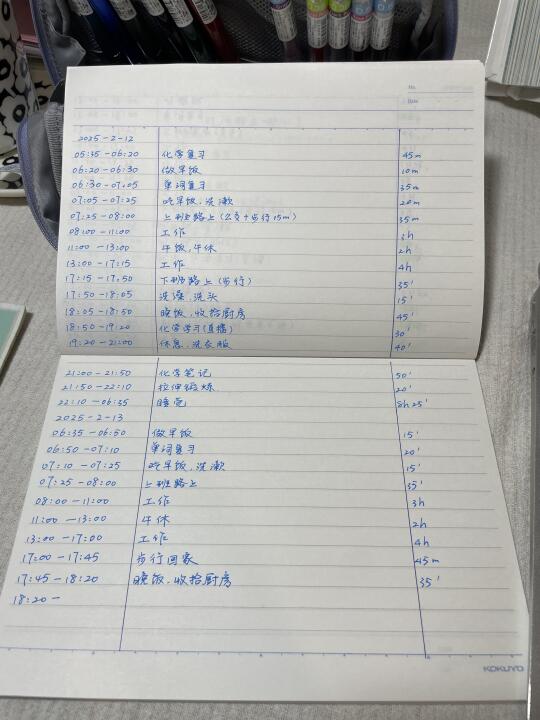 No.
Date
2025-2-12
05:35-06:20 化学复习 45m
06:20-06:30 做早饭 10m
06:30-07:05 单词复习 35m
07:05-07:25 吃早饭,洗漱 20m
07:25-08:00 上班路上(公交+步行15m) 35m
08:00-11:00 工作 3h
11:00-13:00 午饭,午休 2h
13:00-17:15 工作 4h
17:15-17:50 下班路上(步行) 35'
17:50-18:05 洗澡,洗头 15'
18:05-18:50 晚饭,收拾厨房 45'
18:50-19:20 化学学习(直播) 30'
19:20-21:00 休息,洗衣服 40'
21:00-21:50 化学笔记 50'
21:50-22:10 拉伸锻炼 20'
22:10-06:35 睡觉 8h25'
2025-2-13
06:35-06:50 做早饭 15'
06:50-07:10 单词复习 20'
07:10-07:25 吃早饭,洗漱 15'
07:25-08:00 上班路上 35'
08:00-11:00 工作 3h
11:00-13:00 午休 2h
13:00-17:00 工作 4h
17:00-17:45 步行回家 45m
17:45-18:20 晚饭,收拾厨房 35'
18:20-
KOKUYO